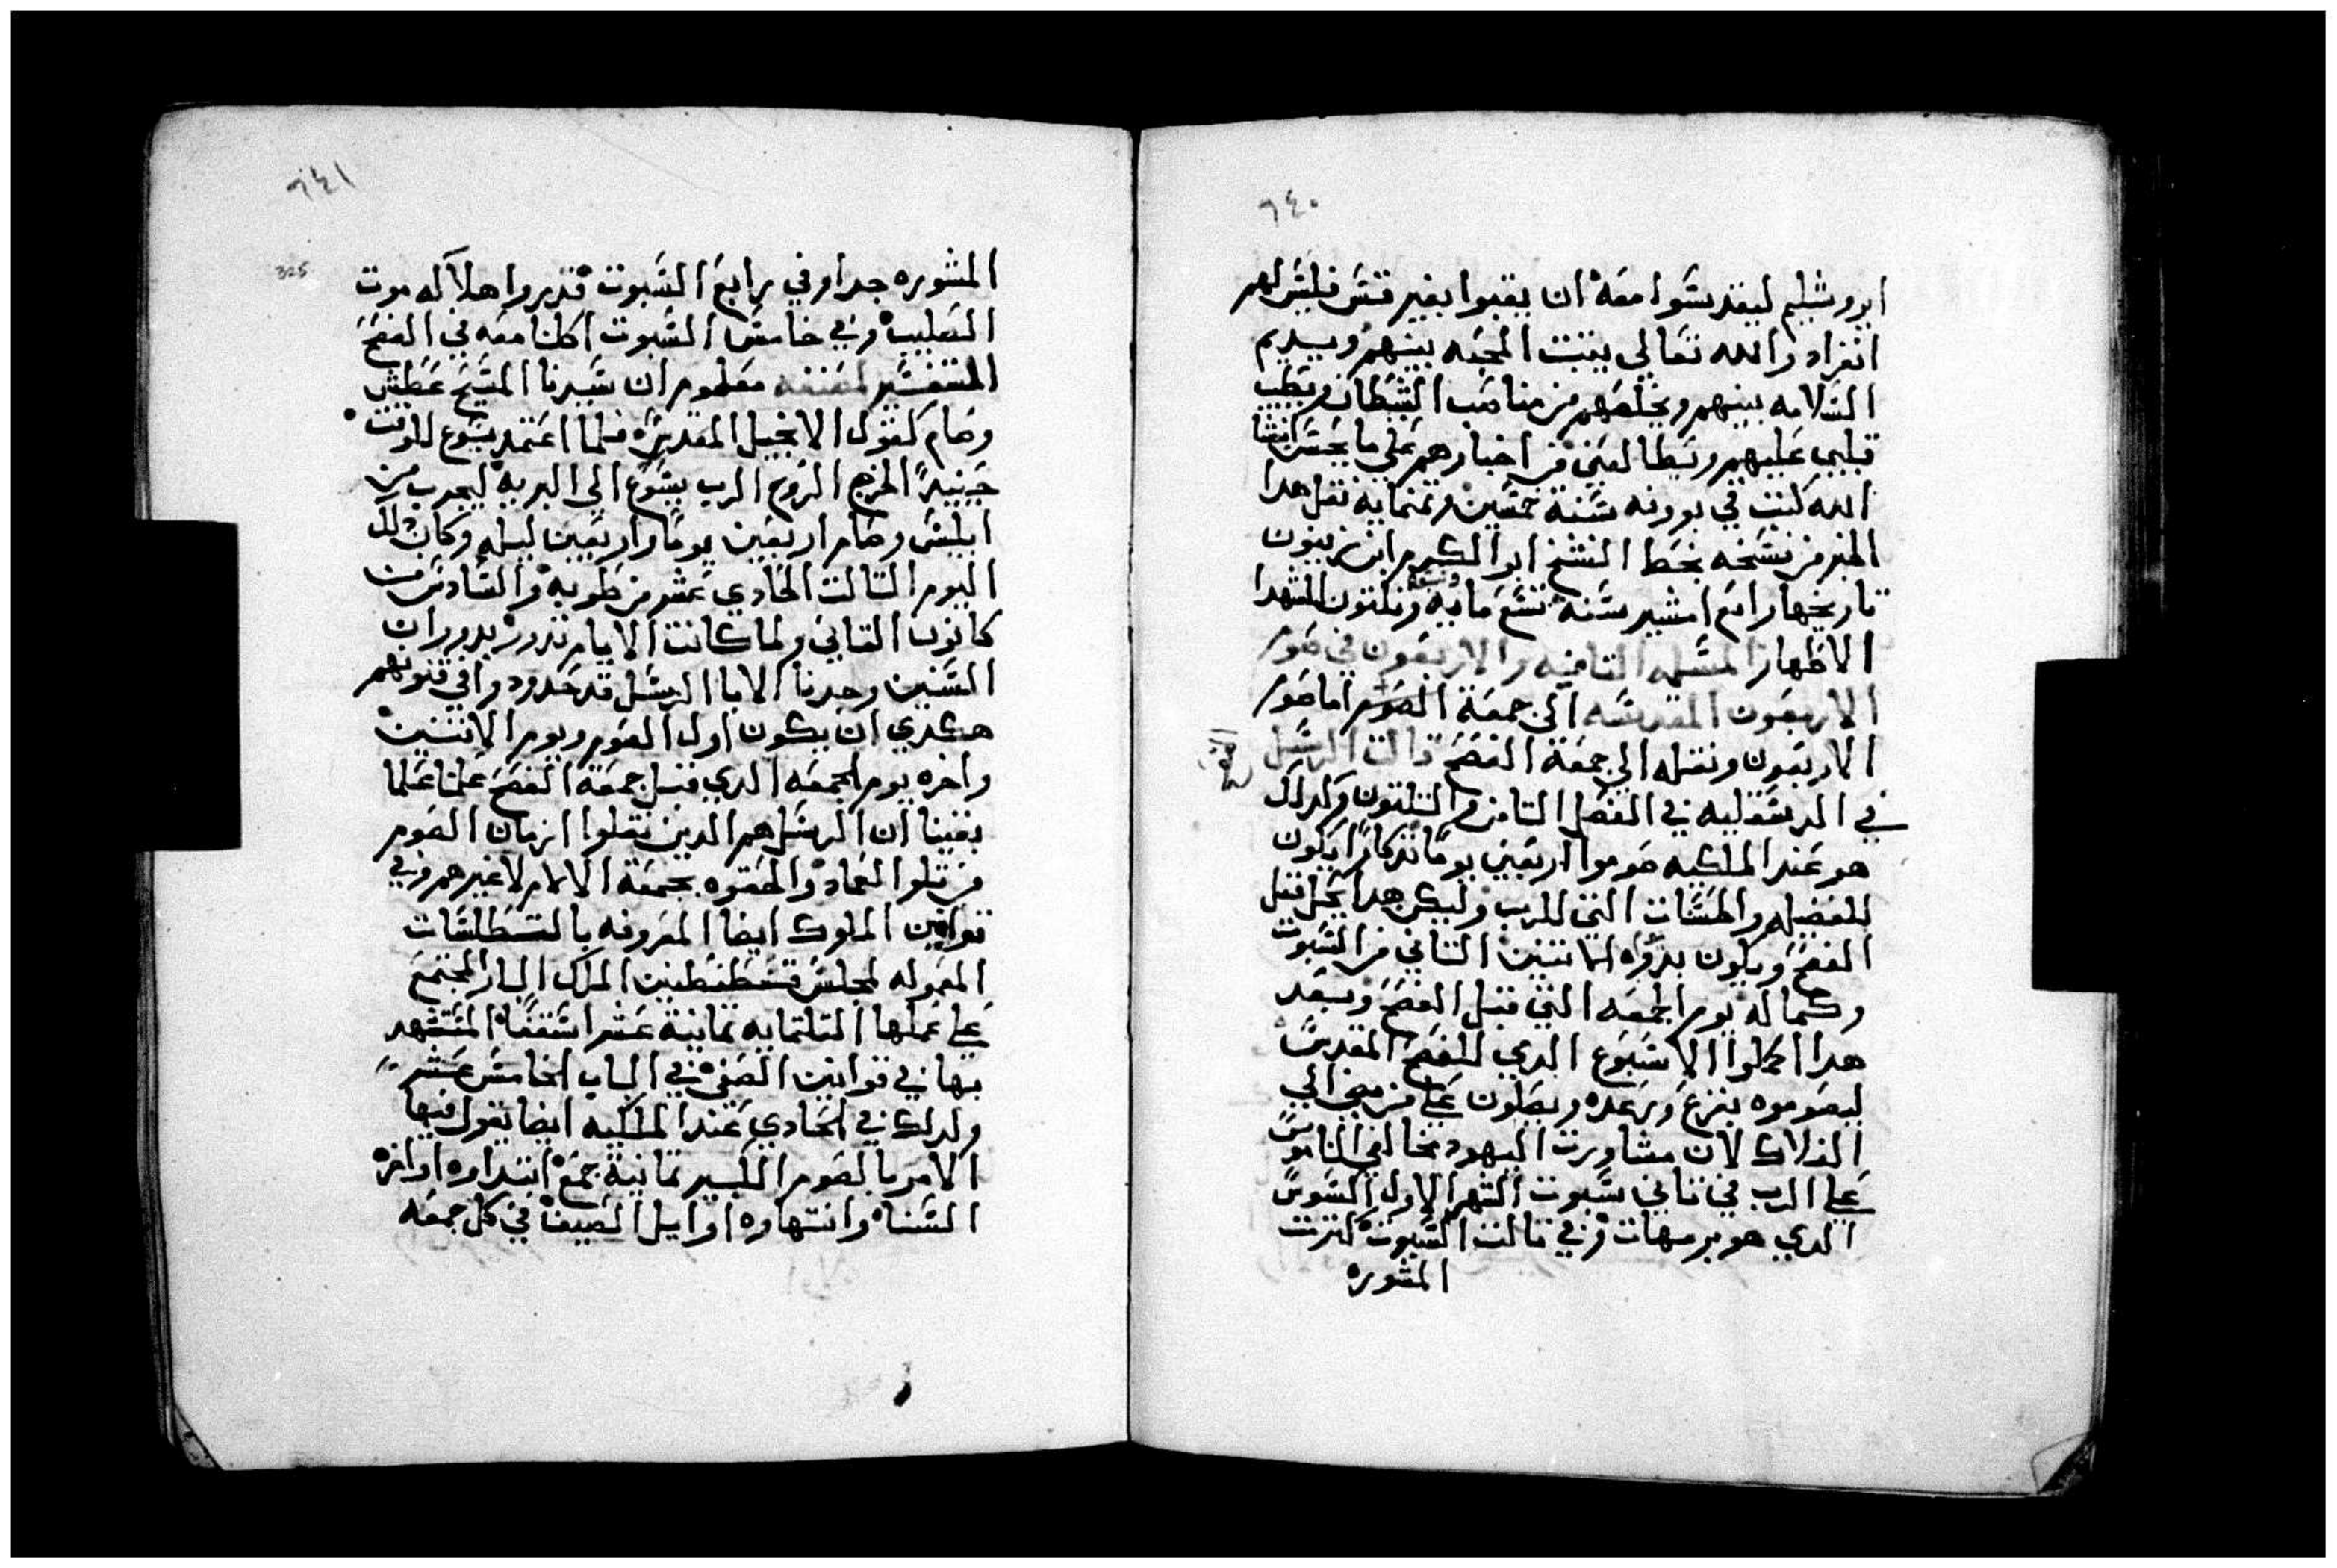 ٦٤٠
ايروشليم ليقدسوا معه ان يقبوا بغير قسر فليس لهم
انفراد والله تعالي يثبت المحبه بينهم ويديم
السلامه بينهم ويخلصهم من مناصب الشيطان ويطيب
قلبي عليهم ويطالعني من اخبارهم علي ما يحسن انشا
الله كتبت في بوونه سنة خمسين وتمنمايه نقل هدا
الخبر من نسخه بخط الشيخ ابو الكرم ابن زيتون
تاريخها رابع امشير سنه تسع مايه وتلتون للشهدا
الاطهار المسله التامنه والاربعون في صوم
الاربعون المقدسه الي جمعة الصوم اما صوم
الاربعون ونقله الي جمعة الفصح قالت الرسل
في الدسقليه في الفصل التامن والتلتون وكدلك
هو عند الملكيه صوموا اربعين يوما تدكارا يكون
للفضيله والحسنات التي للرب وليكن هدا يحل قبل
الفصح ويكون بدوه الاتنين التاني من السبوت
وكماله يوم الجمعه التي قبل الفصح وبعد
هدا اكملوا الاسبوع الدي للفصح المقدس
ليصوموه بفزع ورعده ويصلون علي من يمضي الي
الهلاك لان مشاورت اليهود مخالفي الناموس
علي الرب في تاني سبوت الشهر الاول السوس
الدي هو برمهات وفي تالت السبوت كترت
المشوره
٦٤١
325
المشوره جدا وفي رابع السبوت قدروا هلاكه موت
الصليب وفي خامس السبوت اكلنا معه في الفصح
المتفسير لمصنفه معلوم ان سيدنا المسيح عطش
وصام كقول الانجيل المقدس فلما اعتمد يسوع للوقت
حينيد اخرج الروح الرب يسوع الي البريه ليجرب من
ابليس وصام اربعين يوما واربعين ليله وكان دلك
اليوم التالت الحادي عشر من طوبه والسادس من
كانون التاني ولما كانت الايام تدور بدوران
السنين وجدنا الابا الرسل قد حددوا في قنونهم
هكدي ان يكون اول الصوم ويوم الاتنين
واخره يوم الجمعه الدي قبل جمعة الفصح علمنا علما
يقينا ان الرسل هم الدين نقلوا ازمان الصوم
من تلو العماد والحقوه بجمعة الالام لا غيرهم وفي
قوانين الملوك ايضا المعروفه بالتسطلسات
المعموله لمجلس قسطنطين الملك البار المجتمع
علي عملها التلتمايه تمانية عشر اسقفا المستشهد
بها في قوانين الصفي في الباب الخامس عشر
ولدلك في الحادي عند الملكيه ايضا يقول فيها
الامر بالصوم الكبير تمانية جمع ابتداوه اواخر
الشتاه وانتهاوه اوايل الصيف في كل جمعه